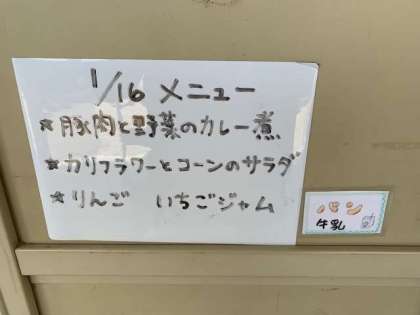 1/16 メニュー
★豚肉と野菜のカレー煮
★カリフラワーとコーンのサラダ
★りんご いちごジャム
パン
牛乳